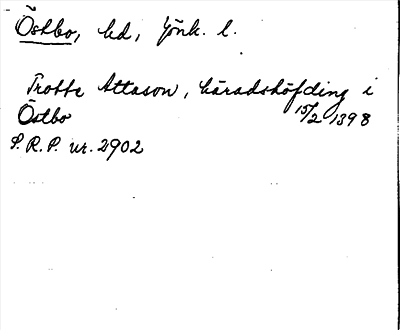 Östbo, hd, Jönk. l.
Trotte Attason, häradshöfding i
Östbo 15/2 1398
S.R.P. nr. 2902